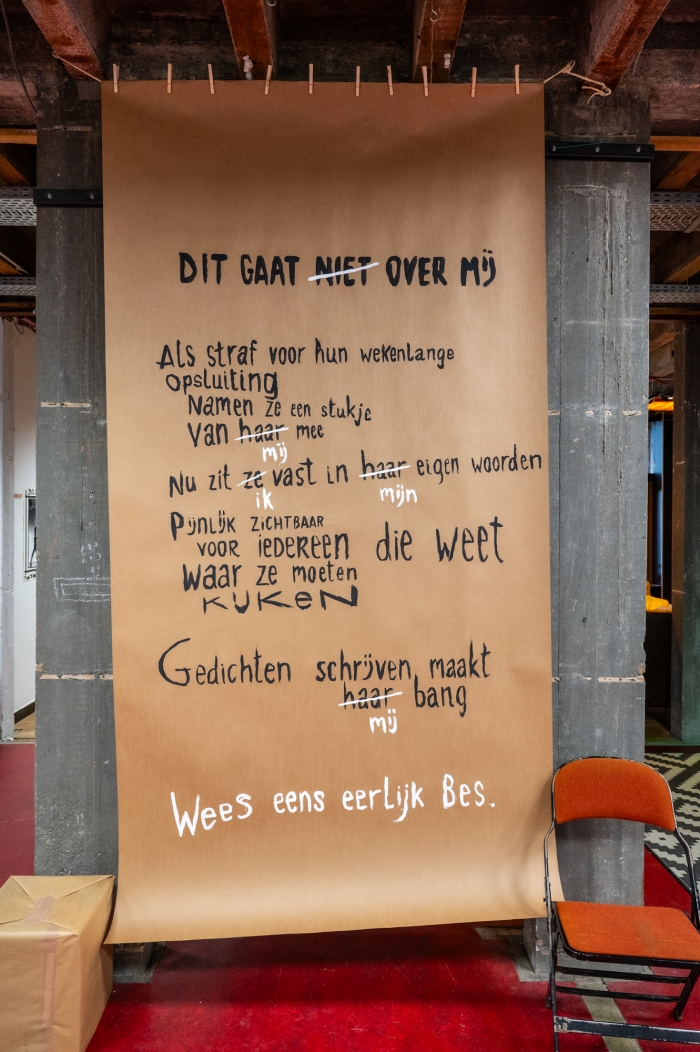 DIT GAAT NIET OVER MIJ
Als straf voor hun wekenlange
opsluiting
Namen ze een stukje
Van haar mee
mij
Nu zit ze vast in haar eigen woorden
ik mijn
Pijnlijk zichtbaar
voor iedereen die weet
waar ze moeten
KIJKEN
Gedichten schrijven maakt
haar bang
mij
Wees eens eerlijk Bes.